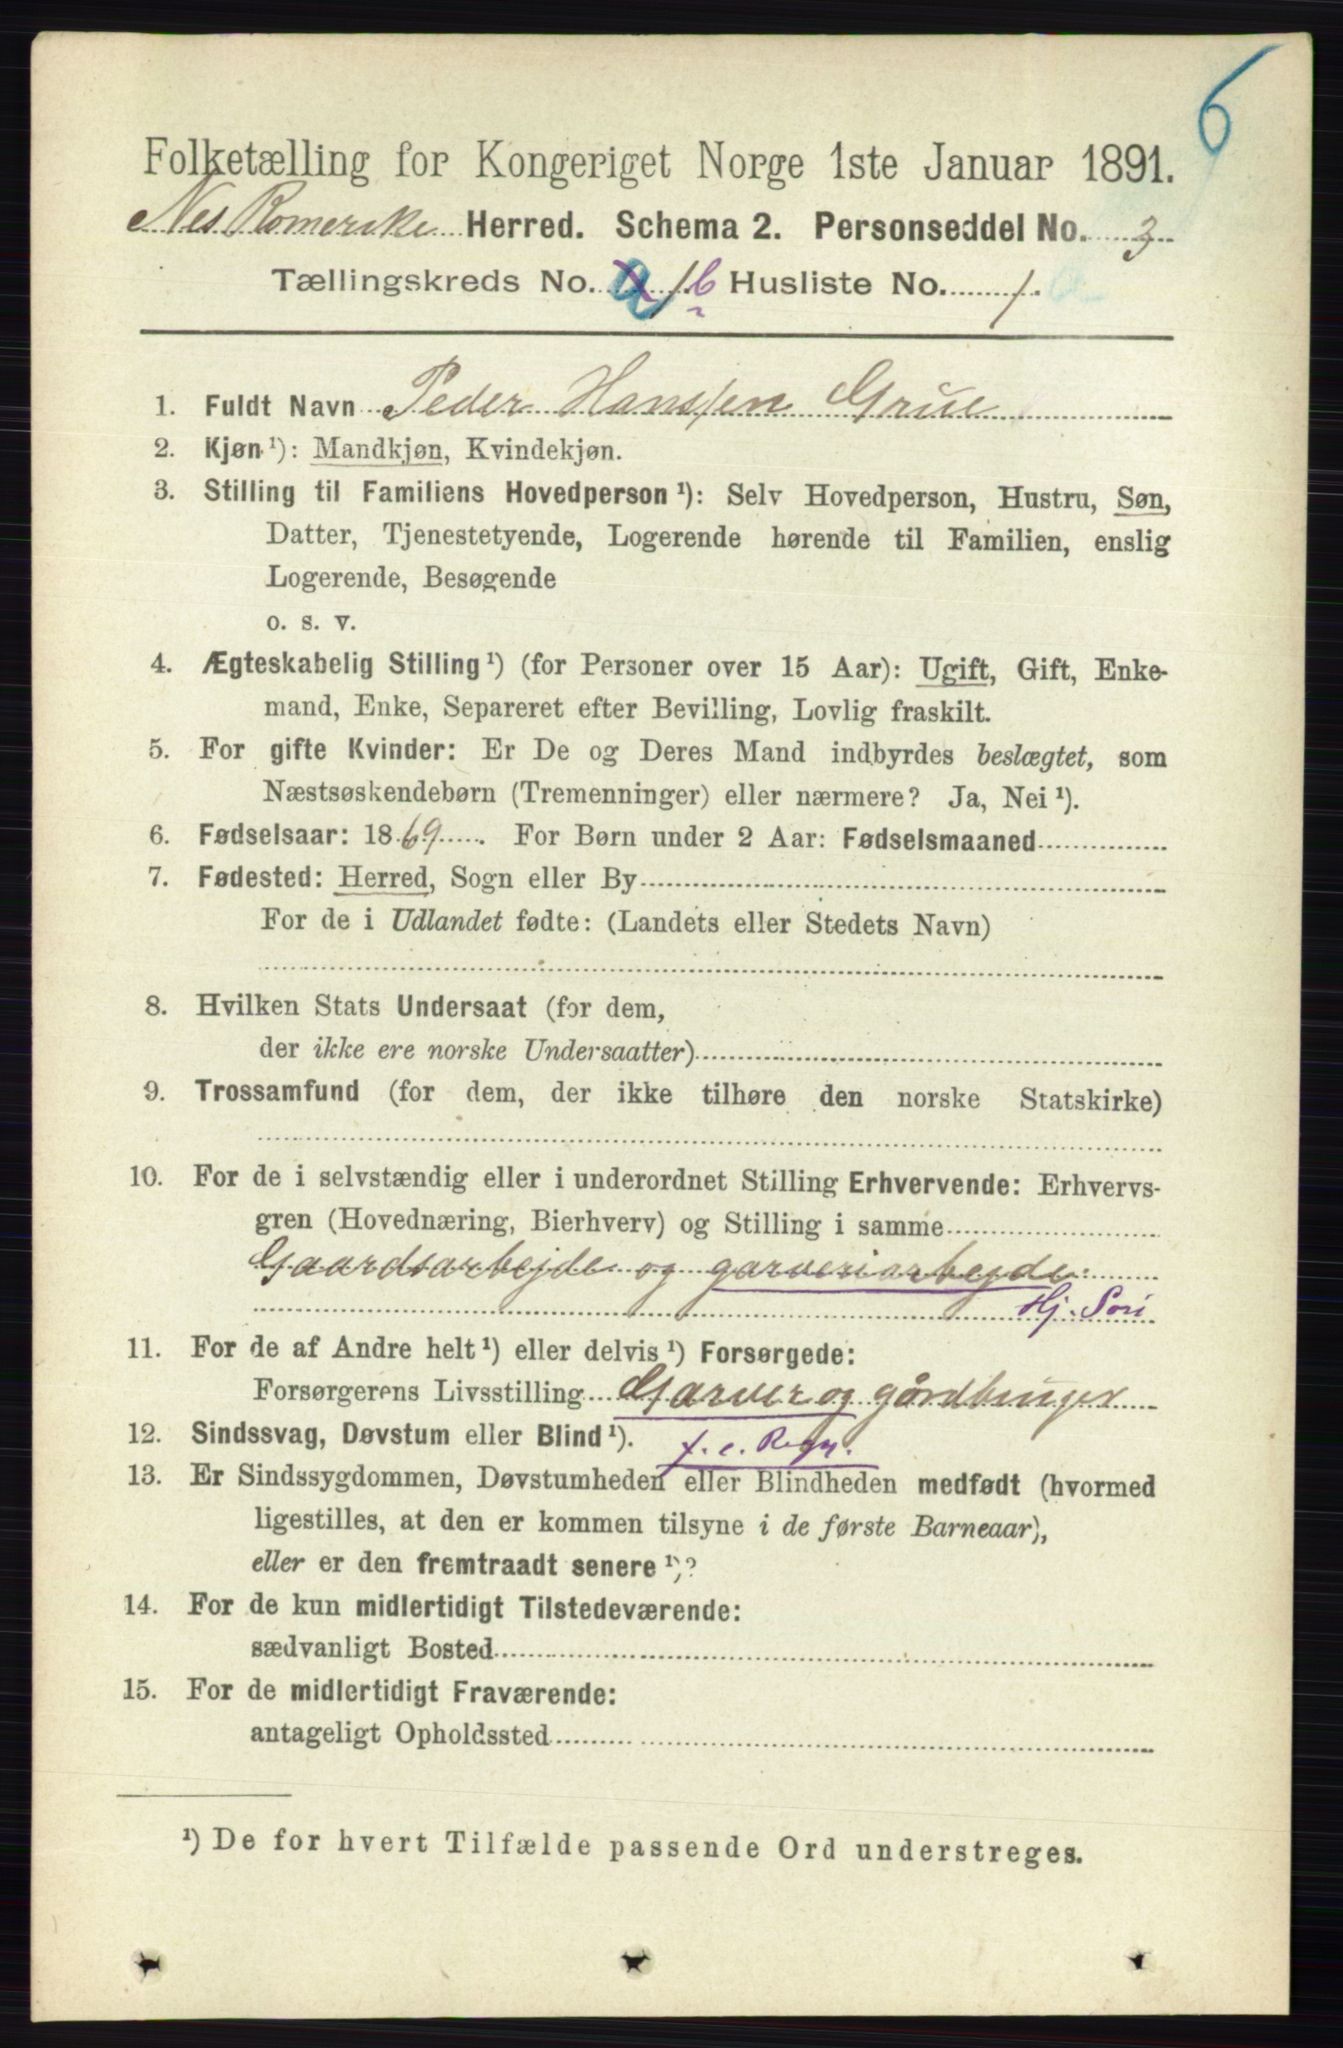 6
Folketælling for Kongeriget Norge 1ste Januar 1891.
Nes Romerike Herred. Schema 2. Personseddel No. 3
Tællingskreds No. 1 b Husliste No. 1.
1. Fuldt Navn Peder Hanssen Grue
2. Kjøn ¹): Mandkjøn, Kvindekjøn.
3. Stilling til Familiens Hovedperson ¹): Selv Hovedperson, Hustru, Søn,
Datter, Tjenestetyende, Logerende hørende til Familien, enslig
Logerende, Besøgende
o. s. v.
4. Ægteskabelig Stilling ¹) (for Personer over 15 Aar): Ugift, Gift, Enke-
mand, Enke, Separeret efter Bevilling, Lovlig fraskilt.
5. For gifte Kvinder: Er De og Deres Mand indbyrdes beslægtet, som
Næstsøskendebørn (Tremenninger) eller nærmere? Ja, Nei ¹).
6. Fødselsaar: 1869. For Børn under 2 Aar: Fødselsmaaned
7. Fødested: Herred, Sogn eller By
For de i Udlandet fødte: (Landets eller Stedets Navn)
8. Hvilken Stats Undersaat (for dem,
der ikke ere norske Undersaatter)
9. Trossamfund (for dem, der ikke tilhøre den norske Statskirke)
10. For de i selvstændig eller i underordnet Stilling Erhvervende: Erhvervs-
gren (Hovednæring, Bierhverv) og Stilling i samme
Gaardsarbejde og garveriarbejde
Hj. Søn
11. For de af Andre helt ¹) eller delvis ¹) Forsørgede:
Forsørgerens Livsstilling Garver og gårdbruger
12. Sindssvag, Døvstum eller Blind ¹). f. e. Regn.
13. Er Sindssygdommen, Døvstumheden eller Blindheden medfødt (hvormed
ligestilles, at den er kommen tilsyne i de første Barneaar),
eller er den fremtraadt senere ¹)?
14. For de kun midlertidigt Tilstedeværende:
sædvanligt Bosted
15. For de midlertidigt Fraværende:
antageligt Opholdssted
¹) De for hvert Tilfælde passende Ord understreges.